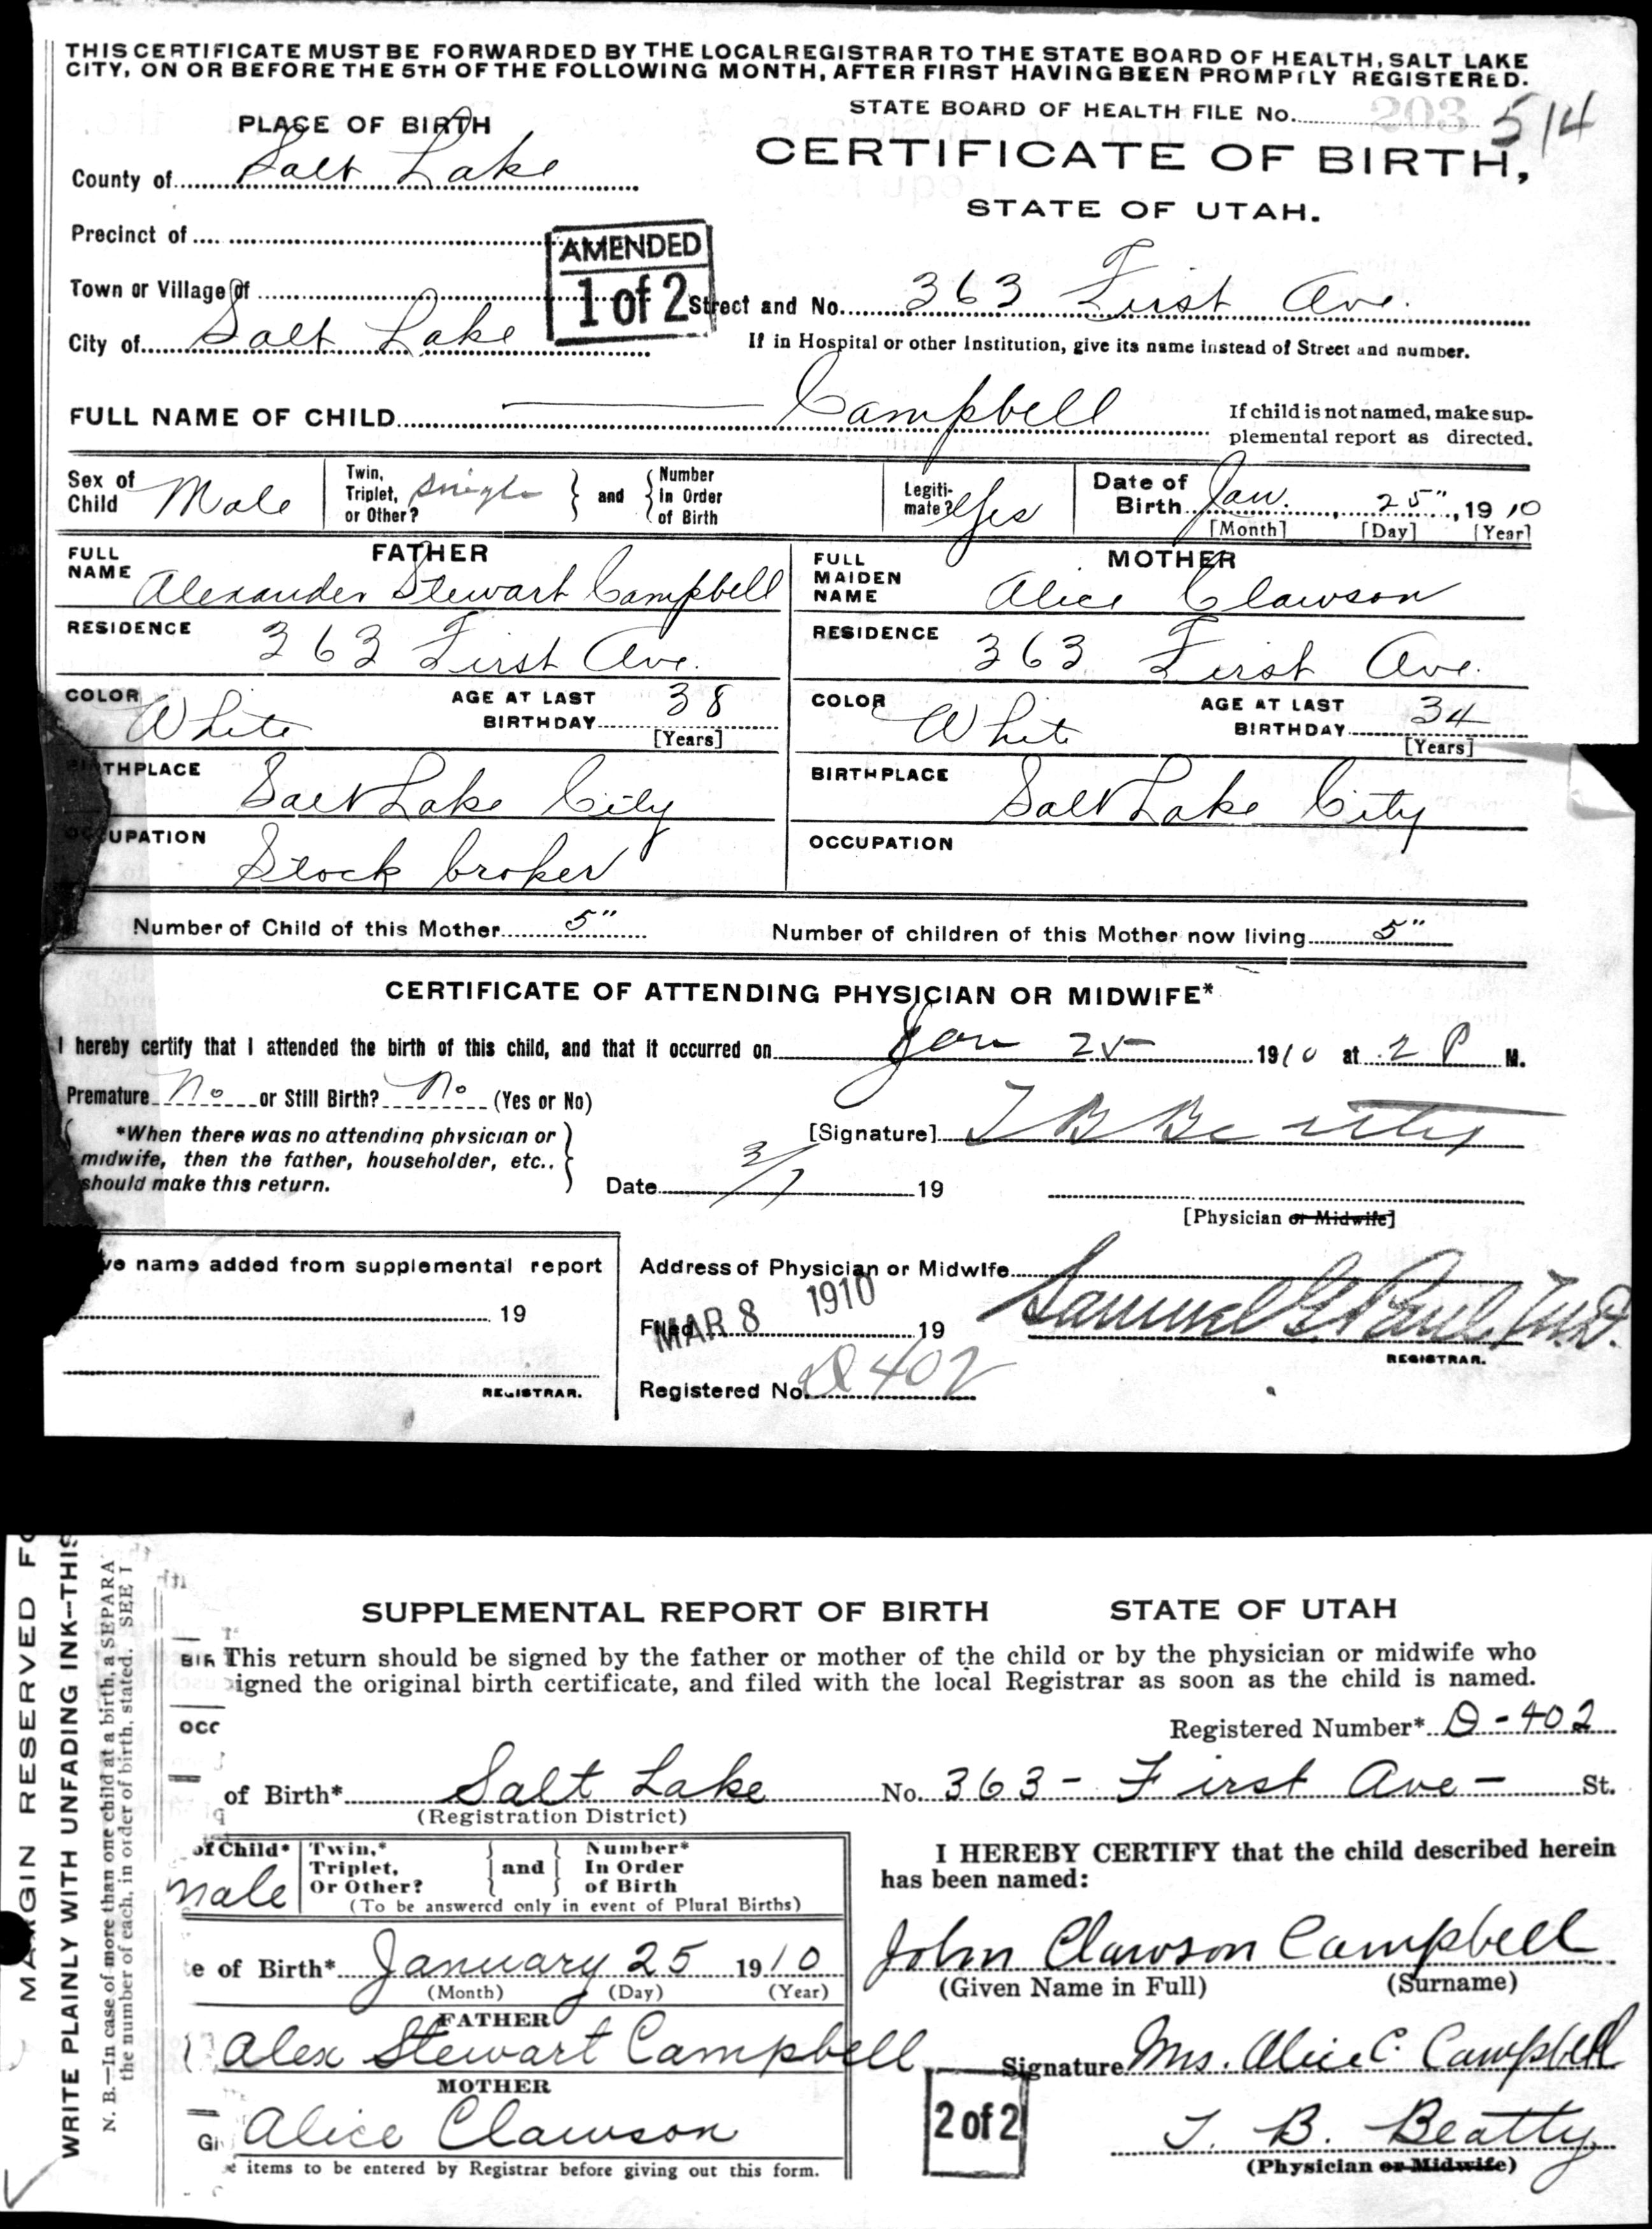 THIS CERTIFICATE MUST BE FORWARDED BY THE LOCAL REGISTRAR TO THE STATE BOARD OF HEALTH, SALT LAKE
CITY, ON OR BEFORE THE 5TH OF THE FOLLOWING MONTH, AFTER FIRST HAVING BEEN PROMPTLY REGISTERED.
STATE BOARD OF HEALTH FILE No. 203 514
PLACE OF BIRTH
CERTIFICATE OF BIRTH,
County of Salt Lake
STATE OF UTAH.
Precinct of
AMENDED
1 of 2
Town or Village of
Street and No. 363 First Ave.
City of Salt Lake
If in Hospital or other Institution, give its name instead of Street and number.
FULL NAME OF CHILD Campbell
If child is not named, make sup-
plemental report as directed.
Sex of Child Male
Twin, Triplet, or Other? Single
and Number In Order of Birth
Legiti-mate? Yes
Date of Birth Jan. 25", 1910
[Month] [Day] [Year]
FATHER
FULL NAME Alexander Stewart Campbell
RESIDENCE 363 First Ave.
COLOR White AGE AT LAST BIRTHDAY 38
[Years]
THPLACE Salt Lake City
UPATION Stock broker
MOTHER
FULL MAIDEN NAME Alice Clawson
RESIDENCE 363 First Ave.
COLOR White AGE AT LAST BIRTHDAY 34
[Years]
BIRTHPLACE Salt Lake City
OCCUPATION
Number of Child of this Mother 5" Number of children of this Mother now living 5"
CERTIFICATE OF ATTENDING PHYSICIAN OR MIDWIFE*
I hereby certify that I attended the birth of this child, and that it occurred on Jan 25 1910 at 2 P M.
Premature No or Still Birth? No (Yes or No)
*When there was no attending physician or
midwife, then the father, householder, etc..
should make this return.
[Signature] T B Beatty
Date 3/7 19
[Physician or Midwife]
ve name added from supplemental report
19
REGISTRAR.
Address of Physician or Midwife
Filed MAR 8 1910 19
Samuel G. Paul, M.D.
REGISTRAR.
Registered No. D 402
MARGIN RESERVED FO
WRITE PLAINLY WITH UNFADING INK--THIS
N. B.—In case of more than one child at a birth, a SEPARA
the number of each, in order of birth, stated. SEE I
SUPPLEMENTAL REPORT OF BIRTH STATE OF UTAH
BIR This return should be signed by the father or mother of the child or by the physician or midwife who
igned the original birth certificate, and filed with the local Registrar as soon as the child is named.
OCC
Registered Number* D-402
of Birth* Salt Lake No. 363- First Ave- St.
(Registration District)
of Child* Male
Twin,* Triplet, Or Other?
and Number* In Order of Birth
(To be answered only in event of Plural Births)
e of Birth* January 25 1910
(Month) (Day) (Year)
FATHER
Alex Stewart Campbell
MOTHER
Gi Alice Clawson
e items to be entered by Registrar before giving out this form.
I HEREBY CERTIFY that the child described herein
has been named:
John Clawson Campbell
(Given Name in Full) (Surname)
Signature Mrs. Alice C. Campbell
2 of 2
T. B. Beatty
(Physician or Midwife)